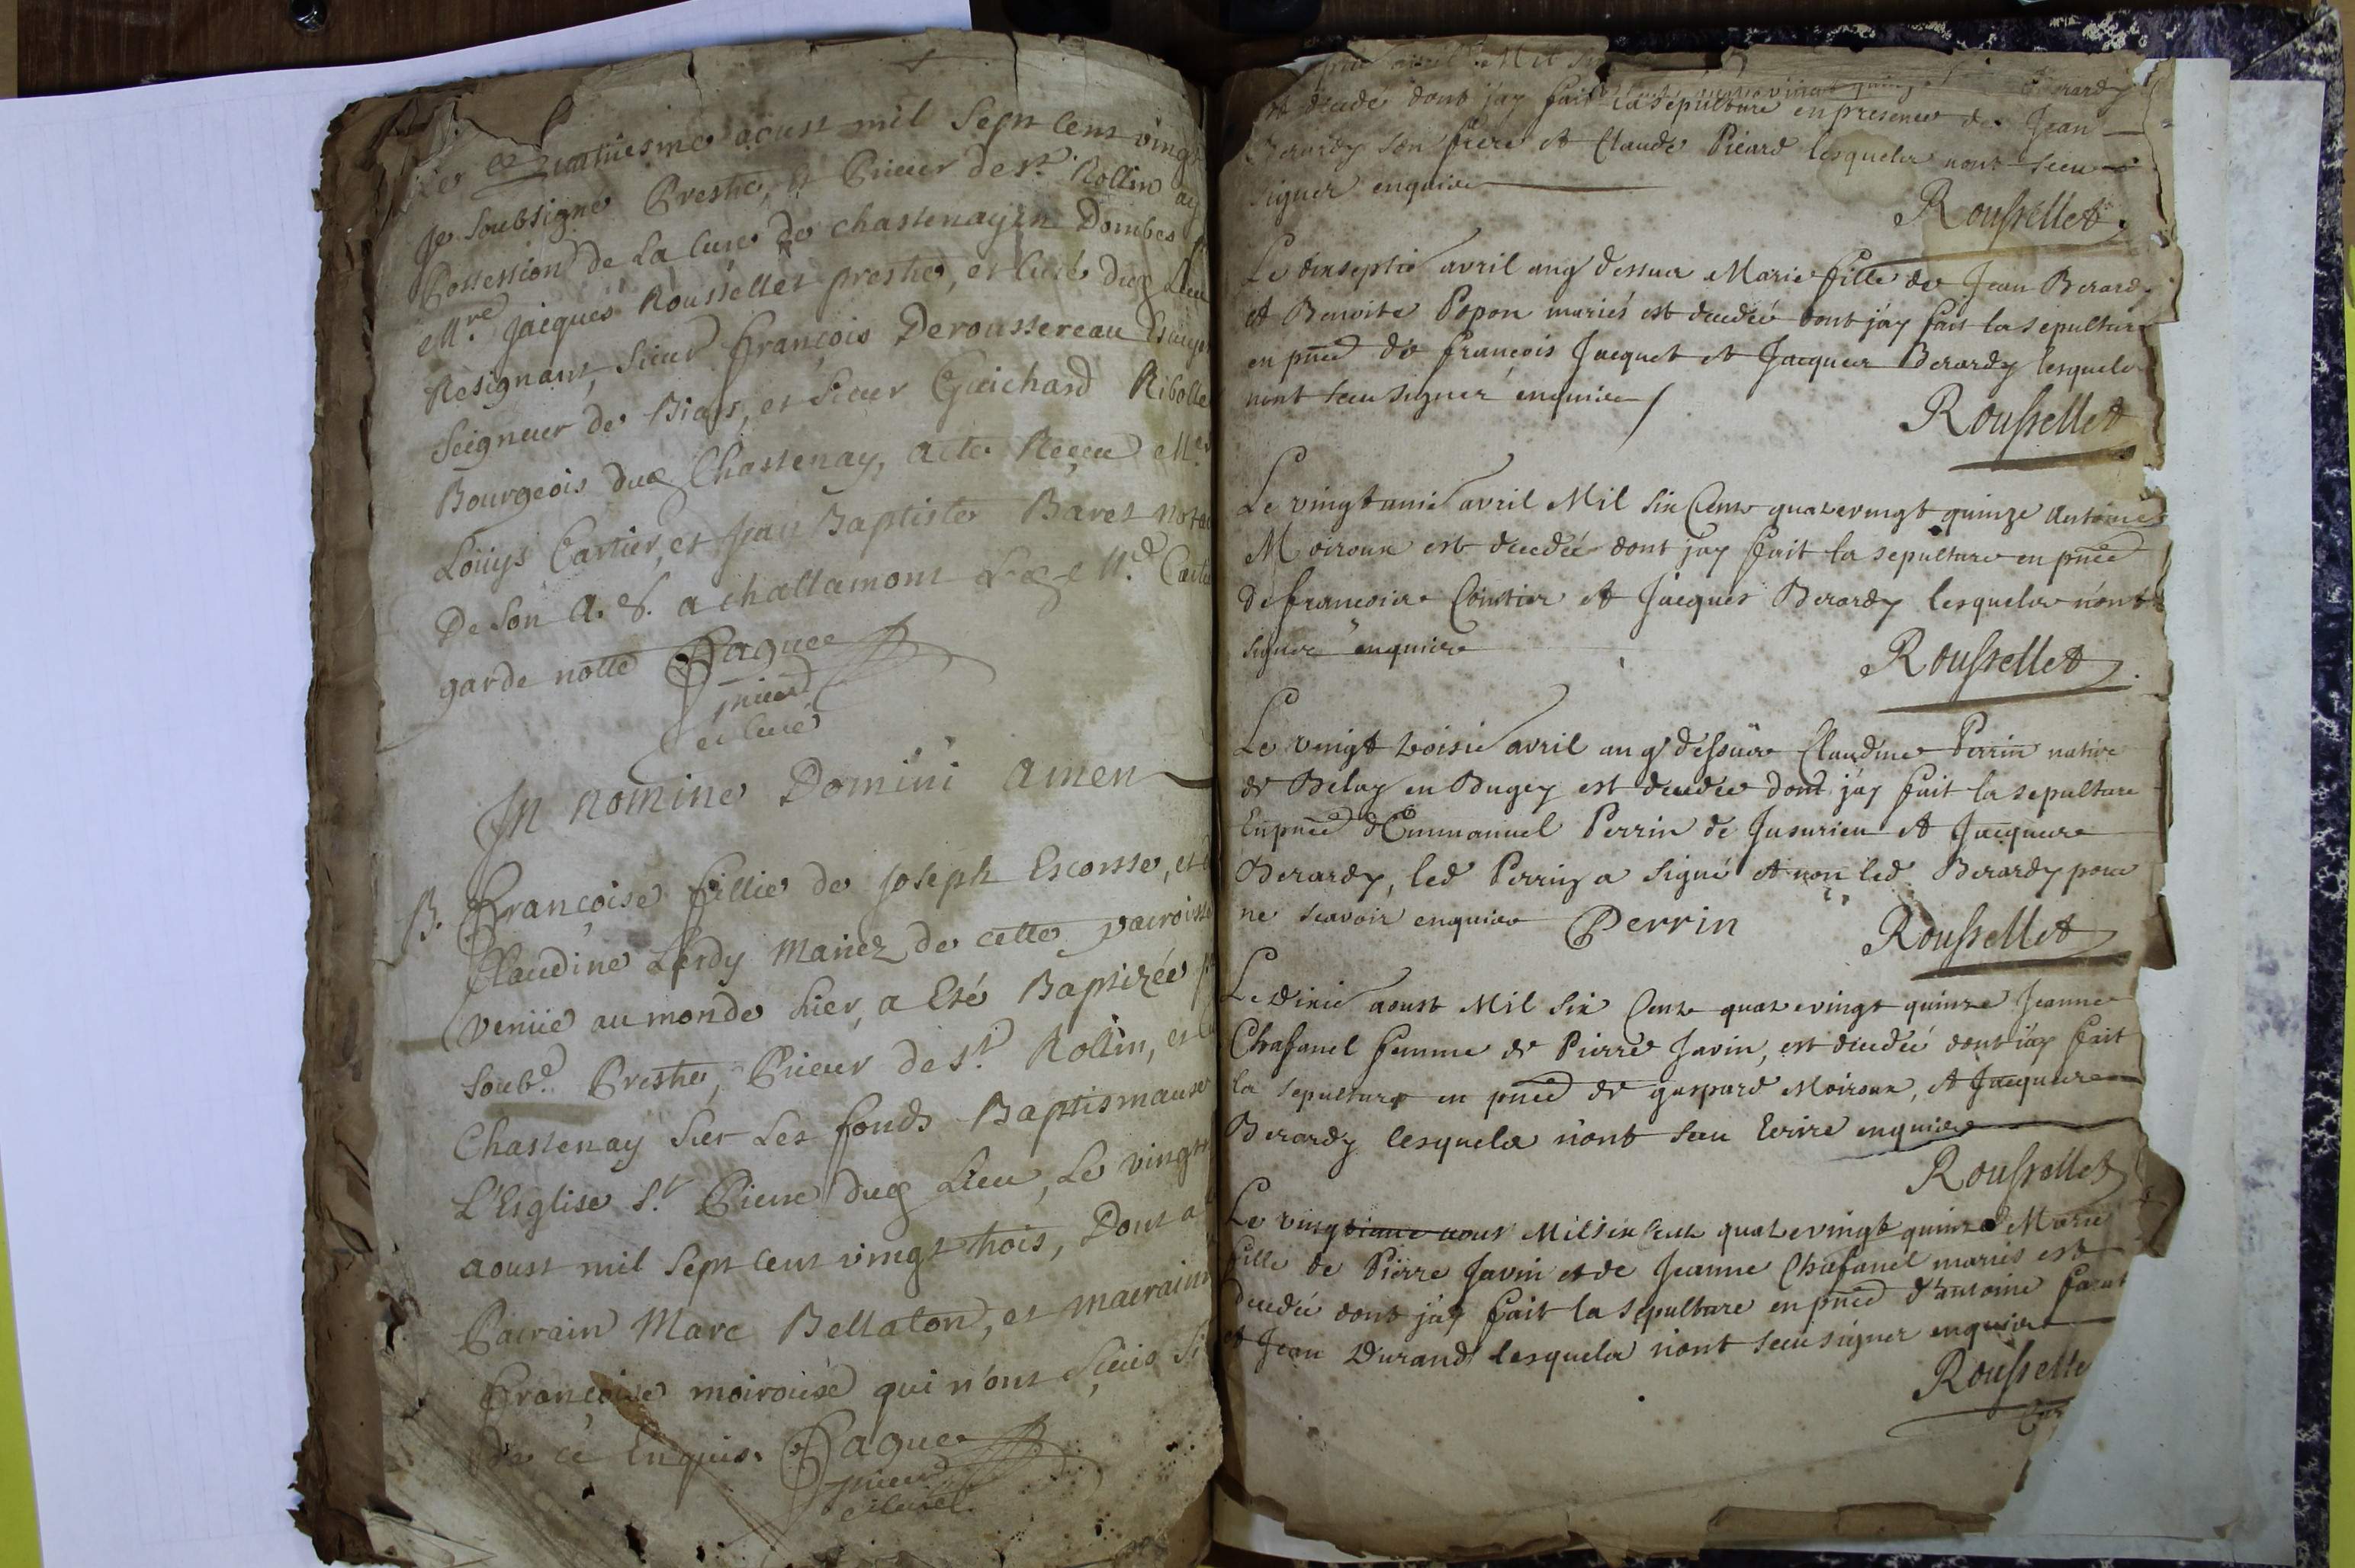 aoust mil sept cent vingt
Je soubsigné Prestre, et Prieur de St. Rollin ay
Possession de La Cure de chastenay en Dombes
Mre. Jacques Rousselles prestre, et Curé duq Lieu
Resignant, sieur françois Deroussereau Escuyer
Seigneur de Biars, et sieur Guichard Ribolle
Bourgeois duq Chastenay, acte Reçeu Me
Loüys Cartier, et Jean Baptiste Baret
De son A. S. a challamont Leq Md. Cartie
garde notte Paquee
prieur
et Curé
In nomine Domini amen
B. Françoise fillie de Joseph Escorsse, et
Claudine Lerdy Mariez de cette parroisse
venüe au monde hier, a Eté Baptizée p
soubd. Prestre, Prieur de St. Rollin, et
Chastenay sur Les fonds Baptismaux
L'Esglise St. Pierre duq Lieu, Le vingt
aoust mil sept cent vingt trois, Dont a
Parrain Marc Bellaton, et marraine
Françoise moirouse qui n'ont sçeus si
De ce Enquis. Paquee
prieur
et Curé
avril Mil
est decedé dont jay fait la sepulture en presence de Jean
Berardy son frere et Claude Picard lesquels nont sceu
signer enquise
Roussellet
Le dixseptie avril anq dessus Marie fille de Jean Berardy
et Benoite Popon mariés est decedée dont j'ay fait la sepulture
en pnce de françois Jacquet et Jacques Berardy lesquels
nont sceu signer enquise
Roussellet
Le vingtunie avril Mil six Cents quatrevingt quinze Antoine
Moiroux est decedé dont jay fait la sepulture en pnce
de francoise Coustier et Jacques Berardy lesquels n'ont
signer enquise
Roussellet
Le vingt troisie avril anq dessus Claudine Perrin native
de Belay en Bugey est decedée dont j'ay fait la sepulture
En pnce d'Emmanuel Perrin de Jusurieu et Jacques
Berardy, led Perrin a signé et non led Berardy pour
ne scavoir enquise Perrin Roussellet
Le dixie aoust Mil Six Cents quatrevingt quinze Jeanne
Chafanel femme de Pierre Javin, est decedée dont j'ay fait
la sepulture en pnce de gaspard Moiroux, et Jacques
Berardy lesquels n'ont sceu Ecrire enquise
Roussellet
Le vingtieme aout Mil six Cents quatrevingt quinze Marie
fille de Pierre Javin et de Jeanne Chafanel mariés est
decedée dont j'ay fait la sepulture en pnce d'antoine
et Jean Durand lesquels n'ont sceu signer enquise
Rousselle
Cur